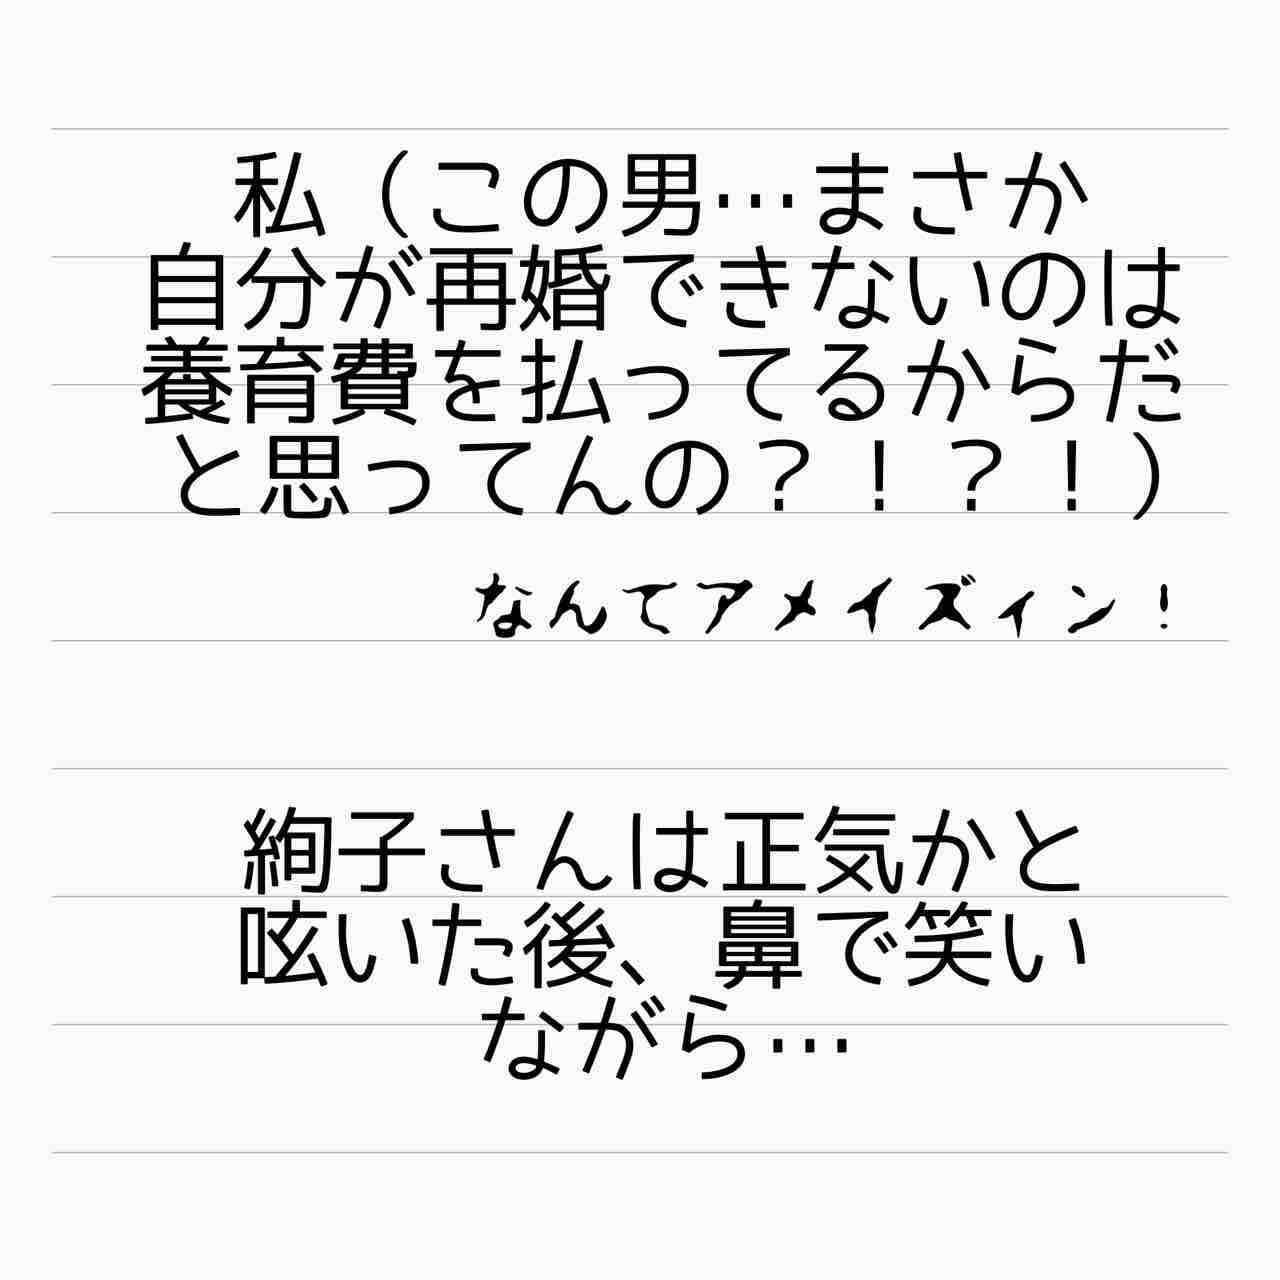 私（この男…まさか
自分が再婚できないのは
養育費を払ってるからだ
と思ってんの？！？！）
なんてアメイズィン！
絢子さんは正気かと
呟いた後、鼻で笑い
ながら…